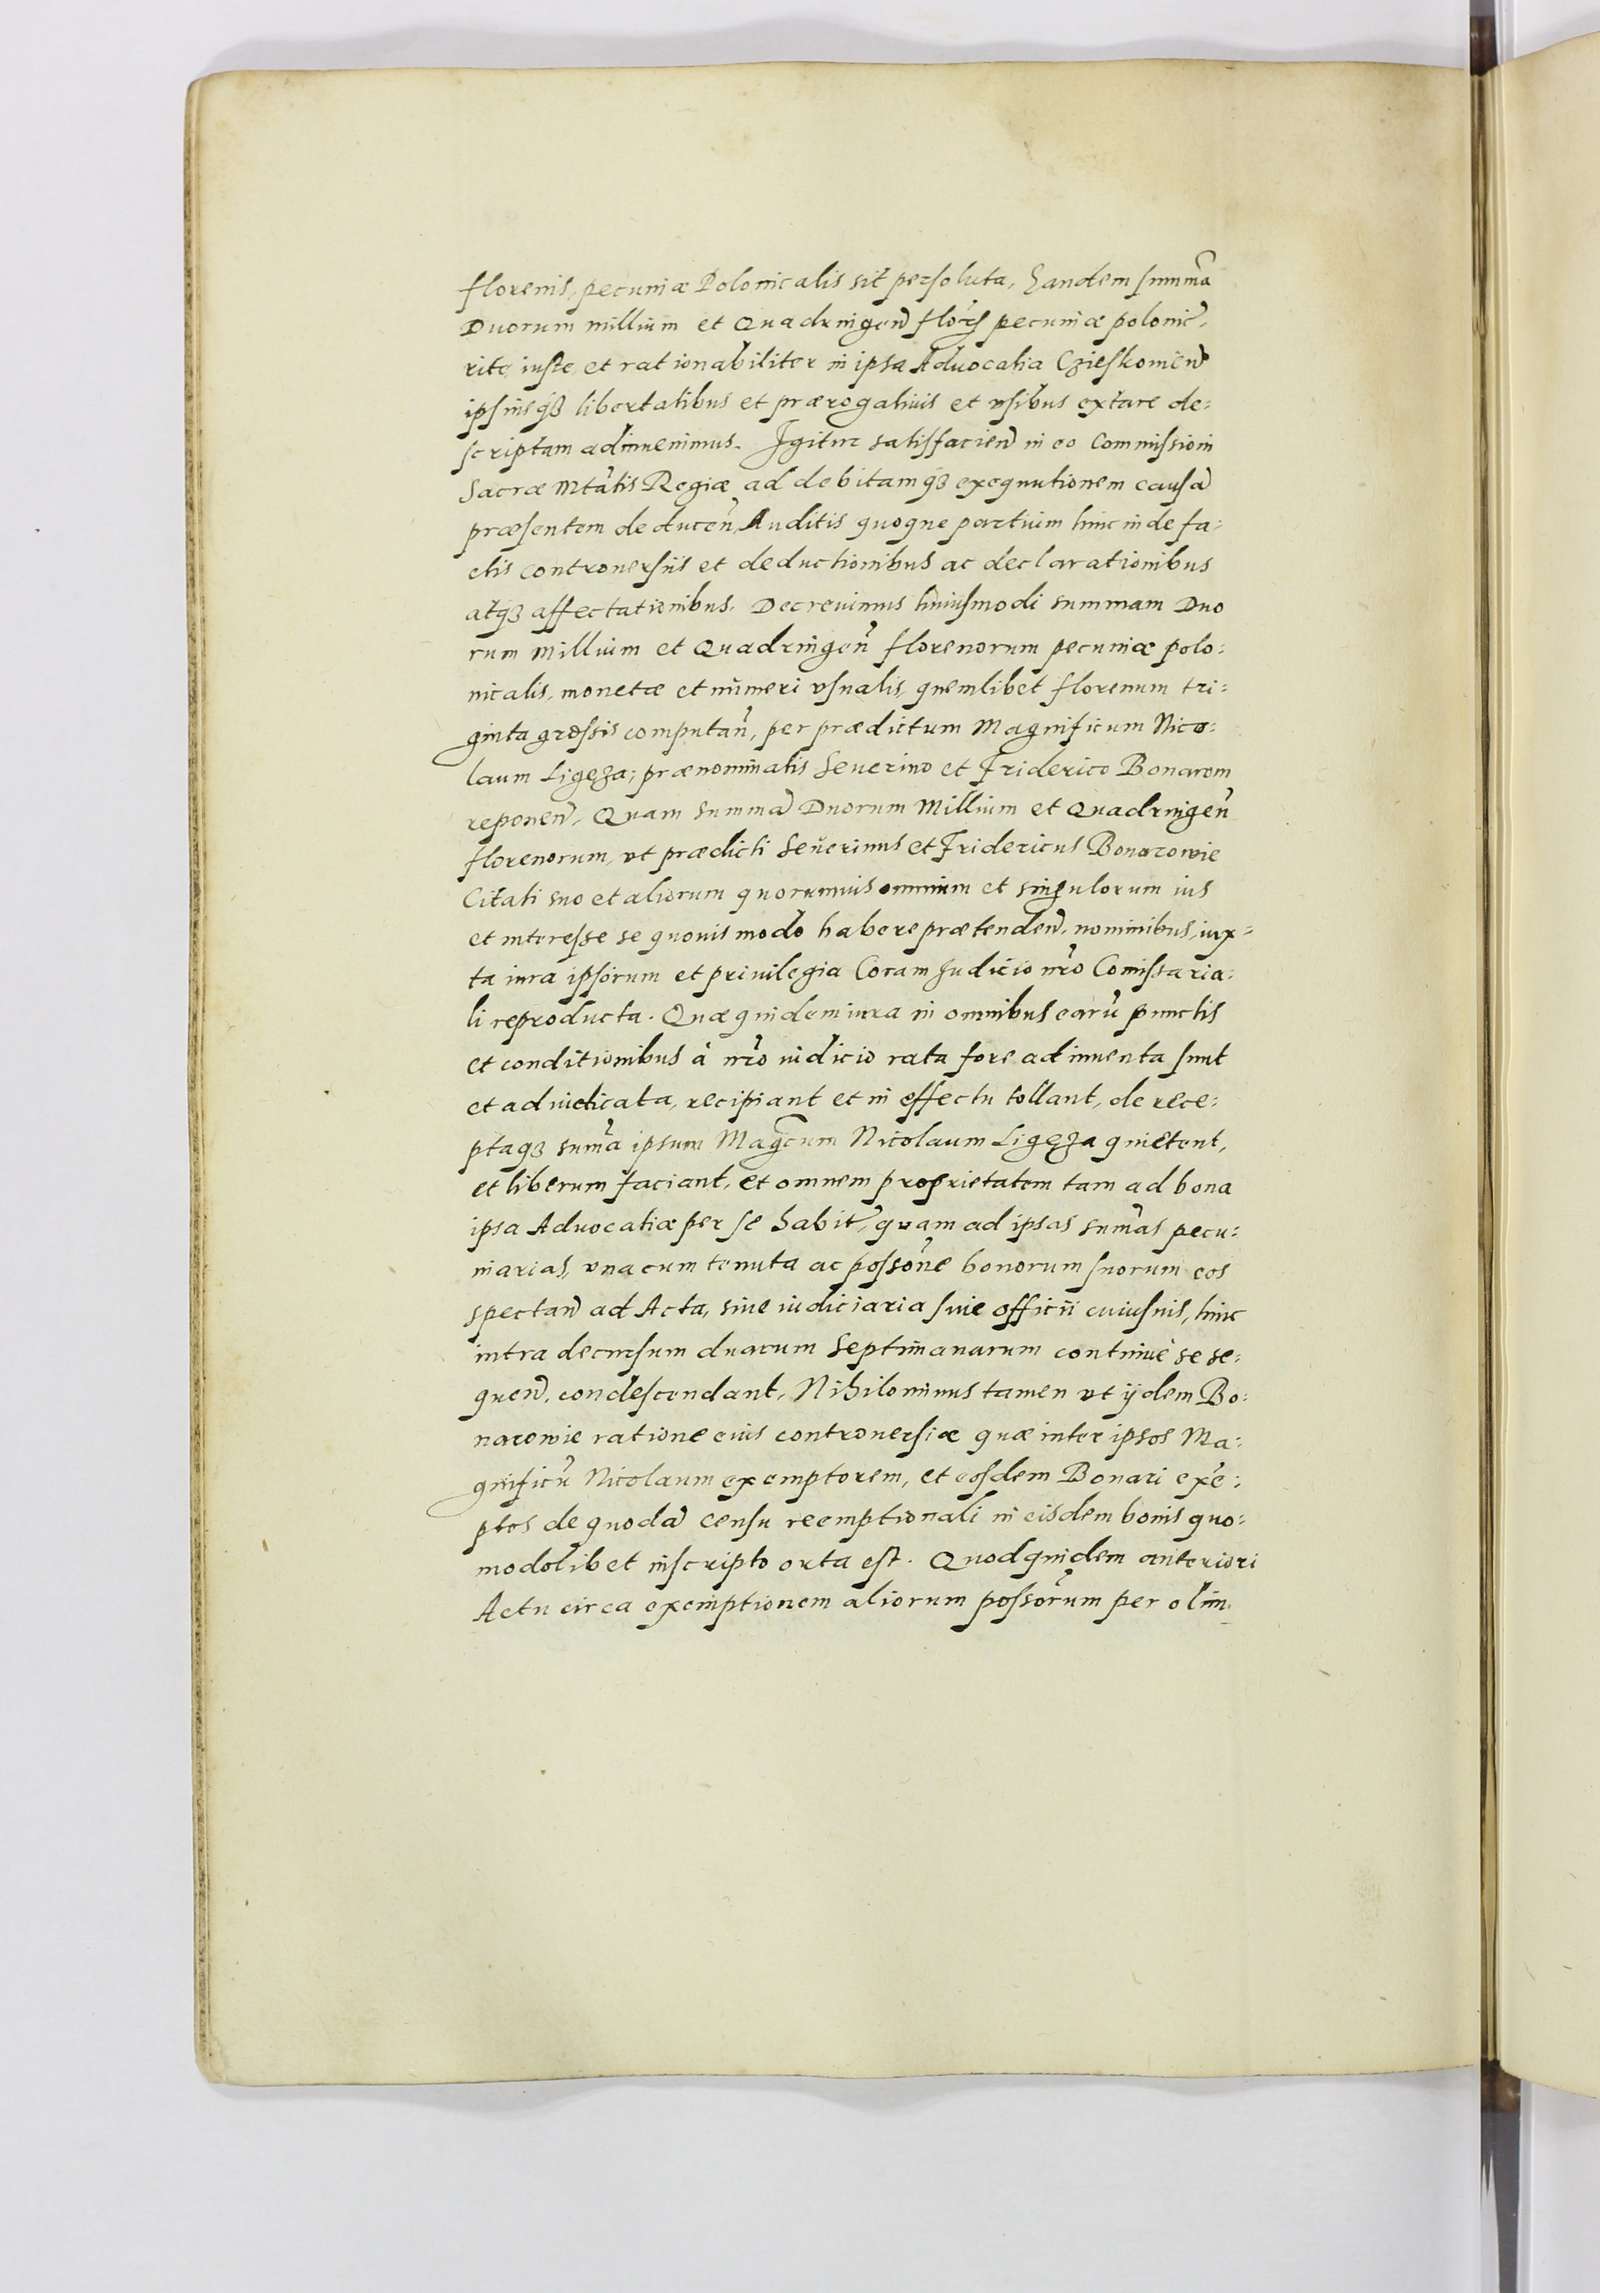 florenis, pecuniæ Polonicalis sit persoluta, Eandem summã
Duorum millium et Quadringeñ floreñ pecuniæ polonic̃,
rite iuste et rationabiliter in ipsa Advocatia Czieskoniceñ
ipsiusq3 libertatibus et prærogatiuis et vsibus extare de:
scriptam adinuenimus. Igitur satisfacieñ in eo Commissioni
Sacræ Mtãtis Regiæ ad debitamq3 exequutionem causã
præsentem deduceñ, Auditis quoque partium hinc inde fa:
ctis controuersiis et deductionibus ac declarationibus
atq3 affectationibus. Decreuimus huiusmodi summam Duo
rum Millium et Quadringeñ florenorum pecuniæ polo:
nicalis, monetæ et numeri vsualis, quemlibet florenum tri:
ginta grossis computañ, per prædictum Magnificum Nico:
laum Ligęza; prænominatis Seuerino et Friderico Bonarom
reponeñ, Quam summã Duorum Millium et Quadringeñ
florenorum, vt prædicti Seuerinus et Fridericus Bonarowie
Citati suo et aliorum quorumuis omnium et singulorum ius
et interesse se quouis modo habere prætendeñ, nominibus, iux=
ta iura ipsorum et priuilegia Coram Judicio nr̃o Comissaria:
li reproducta. Quæ quidem iura in omnibus earũ punctis
et conditionibus à nr̃o iudicio rata fore adinuenta sunt
et adiudicata, recipiant et in effectu tollant, de rece:
ptaq3 sum̃a ipsum Mag̃cum Nicolaum Ligęza quietent,
et liberum faciant, et omnem proprietatem tam ad bona
ipsa Advocatiæ per se habit̃, quam ad ipsas sum̃as pecu:
niarias, vna cum tenuta ac possõne bonorum suorum eos
spectañ ad Acta, siue iudiciaria siue officii cuiusuis, hinc
intra decursum duarum Septimanarum continuè se se:
queñ, condescendant, Nihilominus tamen vt ijdem Bo:
narowie ratione eius controuersiæ quæ inter ipsos Ma:
gnificũ Nicolaum exemptorem, et eosdem Bonari exẽ:
ptos de quodã censu reemptionali in eisdem bonis quo:
modolibet inscripto orta est. Quod quidem anteriori
Actu circa exemptionem aliorum possõrum per olim